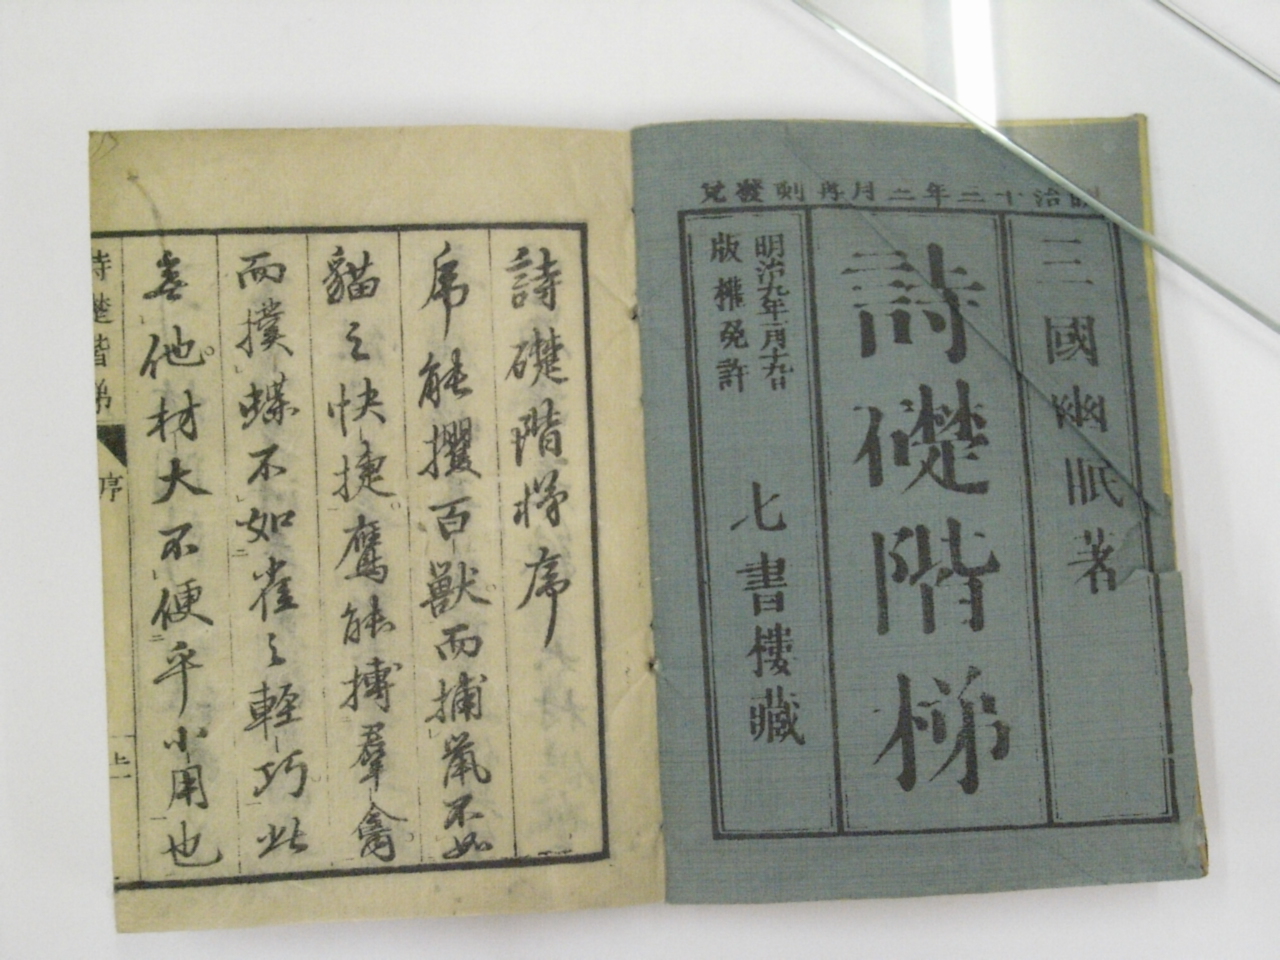 明治十二年二月再刻發兌
三國幽眠著
詩礎階梯
明治九年一月十九日
版權免許
七書樓藏
詩礎階梯序
虎能攫百獸而捕鼠不如
貓之快捷鷹能搏羣禽
而撲蝶不如雀之輕巧此
無他材大不便乎小用也
詩礎階梯
序
上一